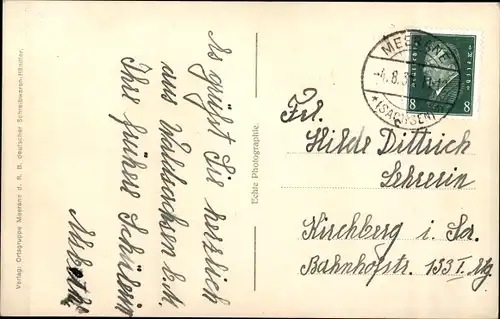 Es grüßt Sie herzlich
aus Waldsachsen b. M.
Ihre frühere Schülerin
Verlag: Ortsgruppe Meerane d. R. B. deutscher Schreibwaren-Händler.
Echte Photographie.
MEERANE
-4.8.3
(SACHSEN)
8 8
Frl.
Hilde Dittrich
Lehrerin
Kirchberg i. Sa.
Bahnhofstr. 133 I. Etg